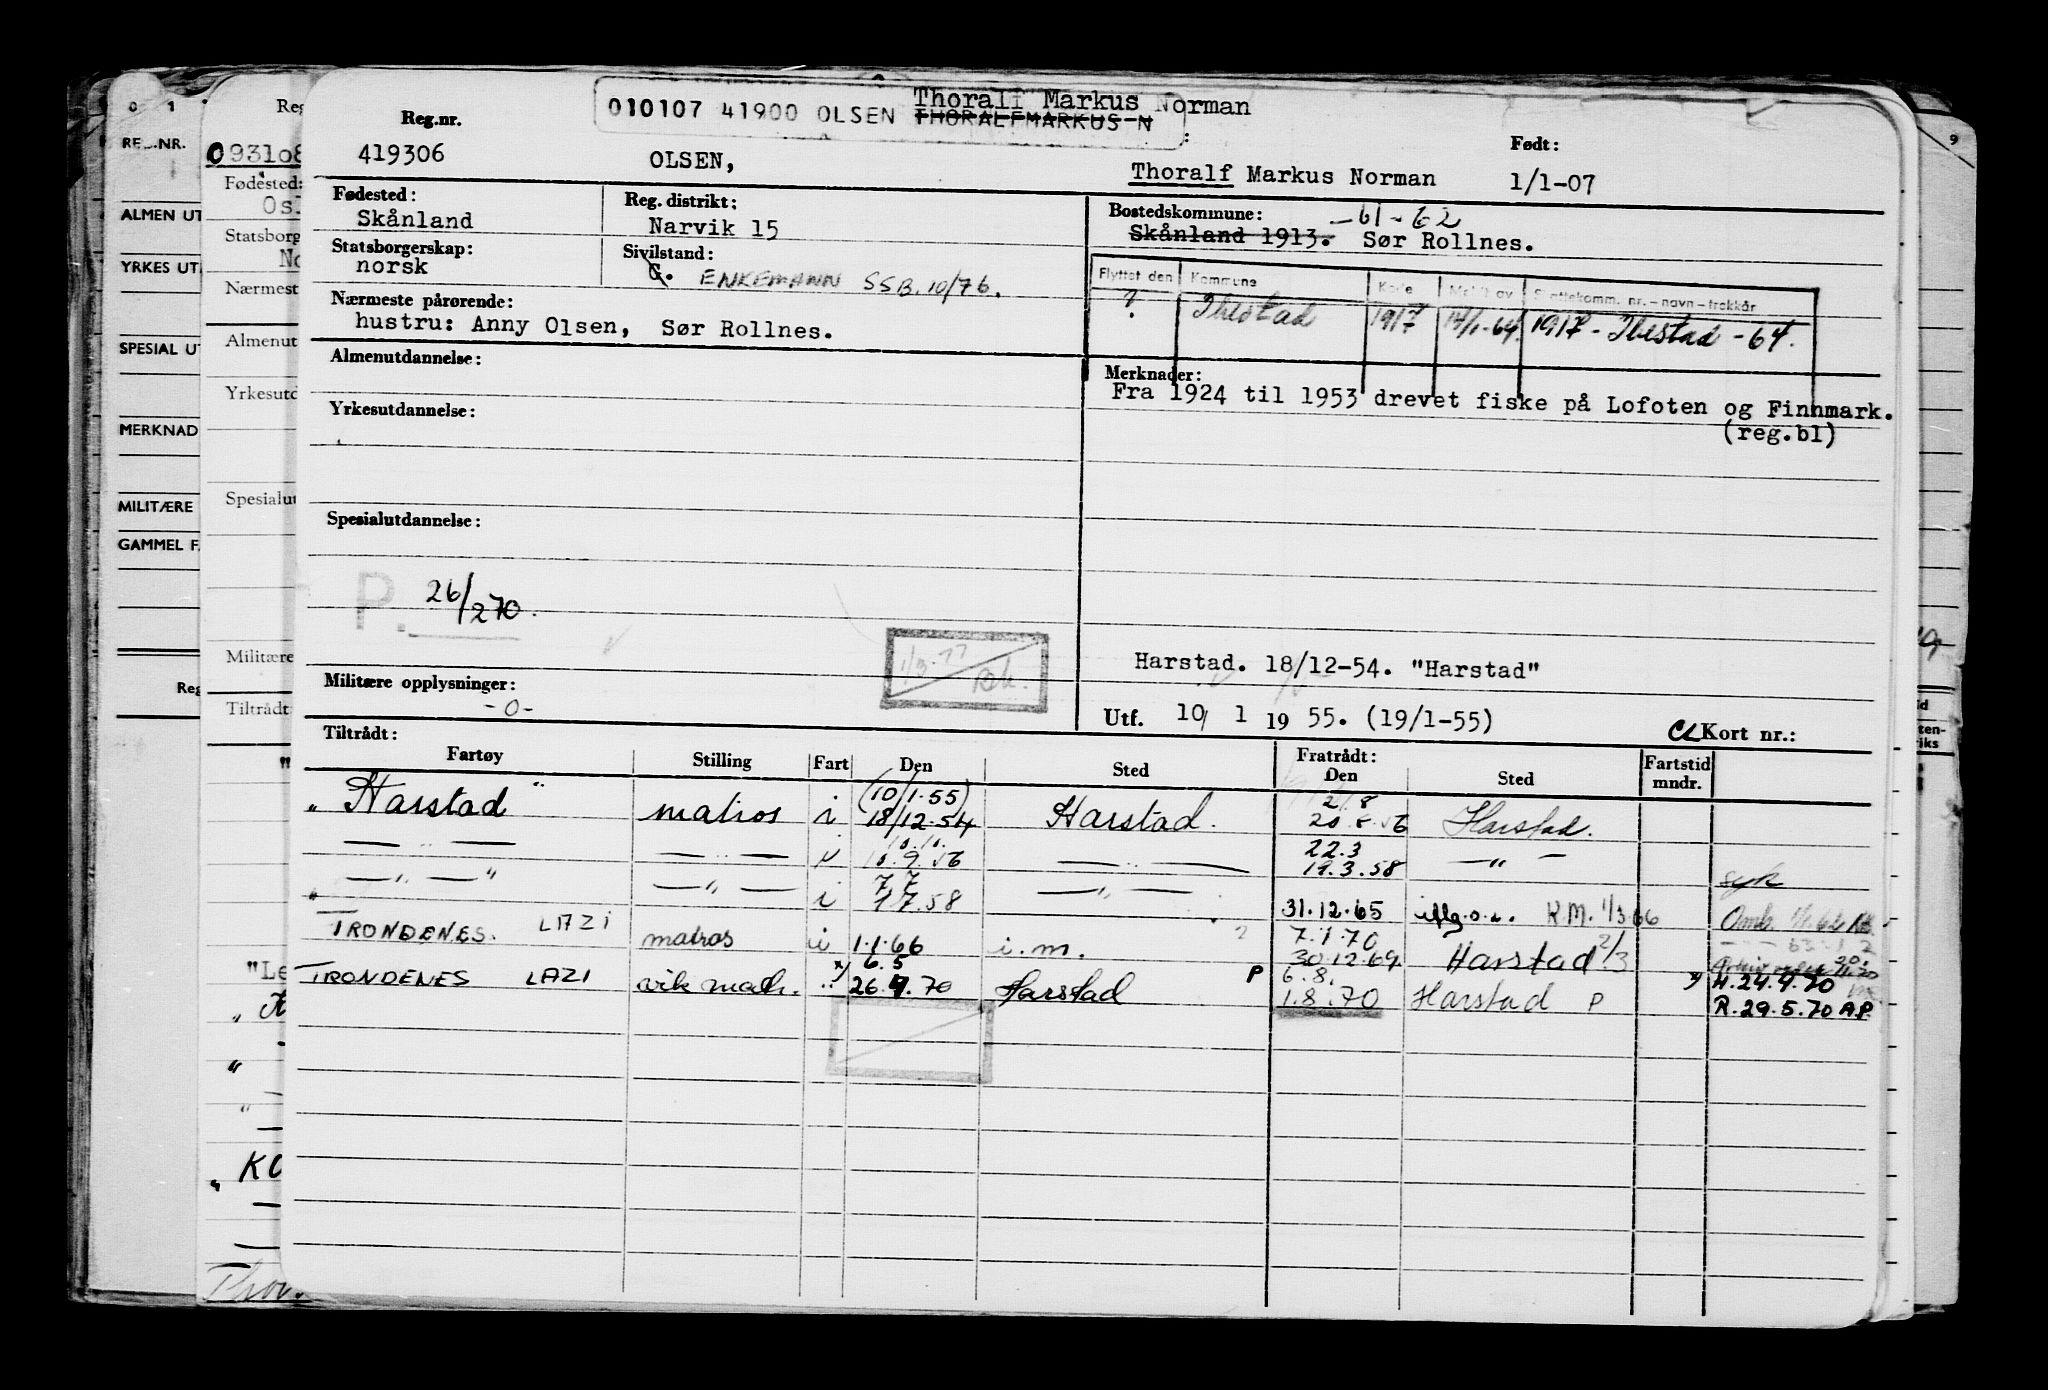 Reg.nr.
010107 41900 OLSEN Thoralf Markus Norman
THORALFMARKUS N
Født:
419306 OLSEN, Thoralf Markus Norman 1/1-07
Fødested: Reg. distrikt: Bostedskommune: -61-62
Skånland Narvik 15 Skånland 1913. Sør Rollnes.
Statsborgerskap: Sivilstand:
norsk G. ENKEMANN SSB. 10/76.
Flyttet den Kommune Kode Meldt av Skattekomm. nr.-navn-trekkår
? Ibestad 1917 14/1-64. 1917 - Ibestad - 64.
Nærmeste pårørende:
hustru: Anny Olsen, Sør Rollnes.
Almenutdannelse: Merknader:
Fra 1924 til 1953 drevet fiske på Lofoten og Finnmark.
(reg.bl)
Yrkesutdannelse:
Spesialutdannelse:
P. 26/270.
1/3-77
Harstad. 18/12-54. "Harstad"
Militære opplysninger:
-0-
Utf. 10/ 1 19 55. (19/1-55) CL Kort nr.:
Tiltrådt: Fratrådt: Fartstid
Fartøy Stilling Fart Den Sted Den Sted mndr.
(10/1-55) 21.8
"Harstad" matros i 18/12-54 Harstad. 20.8.56 Harstad.
10.10. 22.3
— " — — " — 10.9.56 — " — 19.3.58 — " —
7.7 syk
— " — — " — i 17.58 — " — 31.12.65 iflg.o.l. K.M. 1/3.66
7.1.70
TRONDENES. LAZI matros i 1.1.66 i.m. 30.12.69 Harstad 2/3
6.5 6.8.
TRONDENES LAZI vik math. " 26.4.70 Harstad P 1.8.70 Harstad P
H.24.4.70
R.29.5.70 A.P.
REG.NR.
ALMEN UT
YRKES UT
SPESIAL UT
MERKNAD
MILITÆRE
GAMMEL F
Reg
093108
Fødested:
Osl
Statsborg
No
Nærmest
Almenut
Yrkesutd
Spesialut
Militære
Tiltrådt
"Le
KO
Thor.